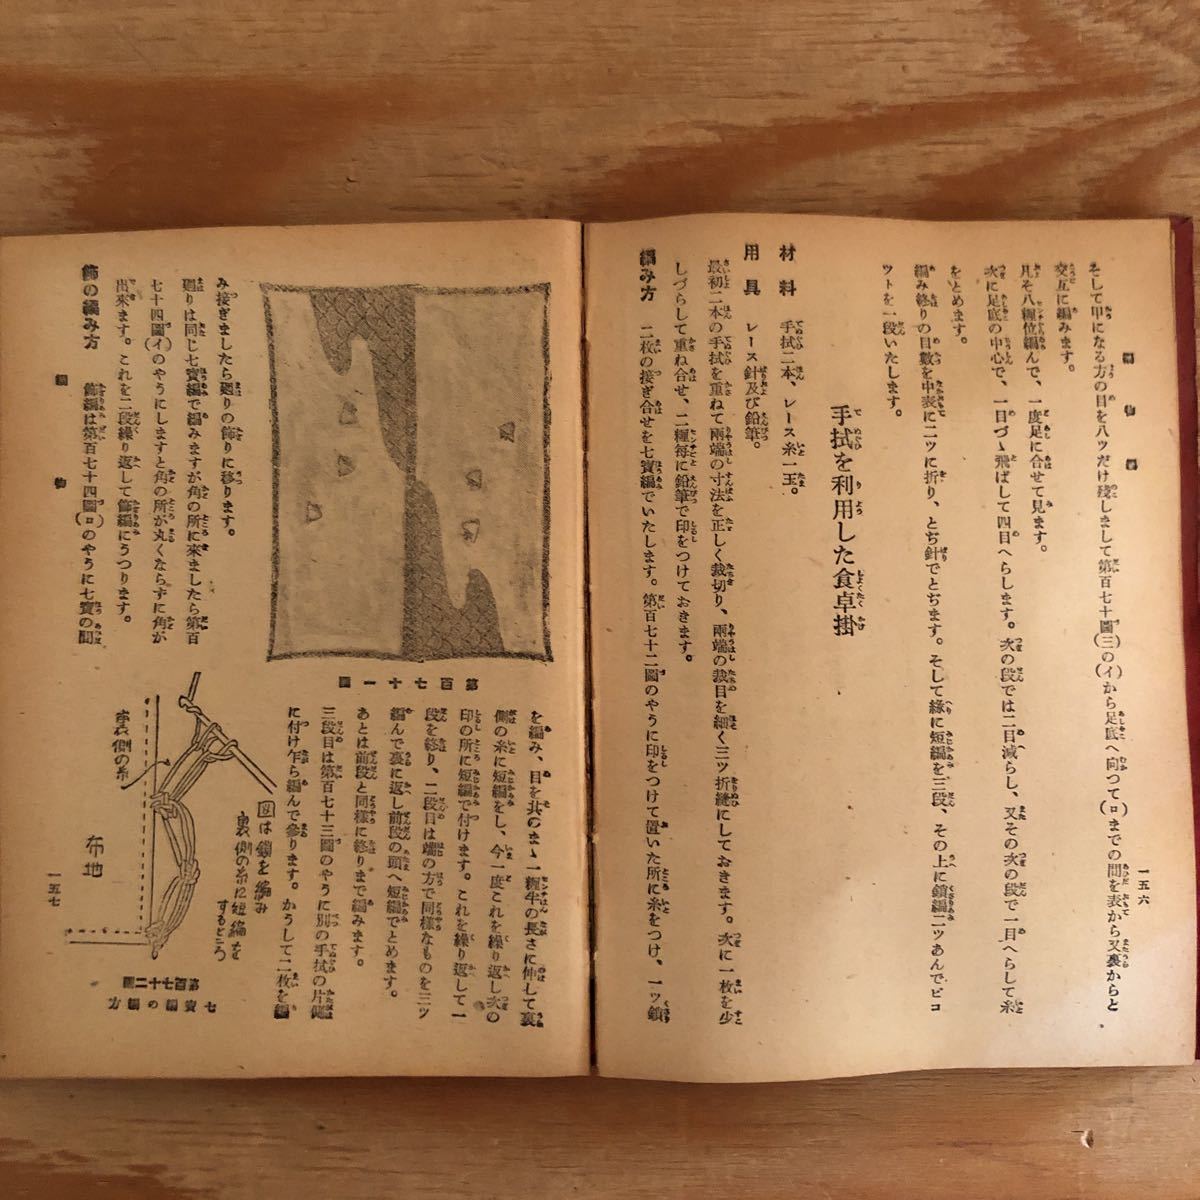 編物
そして甲になる方の目を八ツだけ残しまして第百七十圖(三の(イ)から足底へ向つて(ロ)までの間を表から又裏からと
交互に編みます。
凡そ八糎位編んで、一度足に合せて見ます。
次に足底の中心で、一目づゝ飛ばして四目へらします。次の段では二目減らし、又その次の段で一目へらして糸
をとめます。
編み終りの目數を中表に二ツに折り、とぢ針でとぢます。そして緣に短編を三段、その上に鎖編二ッあんでピコ
ットを一段いたします。
手拭を利用した食卓掛
材料 手拭二本、レース糸一玉。
用具 レース針及び鉛筆。
最初二本の手拭を重ねて兩端の寸法を正しく裁切り、兩端の裁目を細く三ツ折縫にしておきます。次に一枚を少
しづらして重ね合せ、二糎每に鉛筆で印をつけておきます。
編み方 二枚の接ぎ合せを七寶編でいたします。第百七十二圖のやうに印をつけて置いた所に糸をつけ、一ッ鎖
一五六
第百七十一圖
を編み、目を其のまゝ一糎半の長さに伸して裏
側の糸に短編をし、今一度これを繰り返し次の
印の所に短編で付けます。これを繰り返して一
段を終り、二段目は端の方で同樣なものを三ッ
編んで裏に返し前段の頭へ短編でとめます。
あとは前段と同樣に終りまで編みます。
三段目は第百七十三圖のやうに別の手拭の片側
に付け乍ら編んで參ります。かうして二枚を編
み接ぎましたら廻りの飾りに移ります。
廻りは同じ七寶編で編みますが角の所に來ましたら第百
七十四圖(イ)のやうにしますと角の所が丸くならずに角が
出來ます。これを二段繰り返して飾編にうつります。
飾の編み方 飾編は第百七十四圖(ロ)のやうに七寶の間
編物
圖は鎖を編み
裏側の糸に短編を
するところ
裏側の糸
布地
第百七十二圖
七寶編の編方
一五七